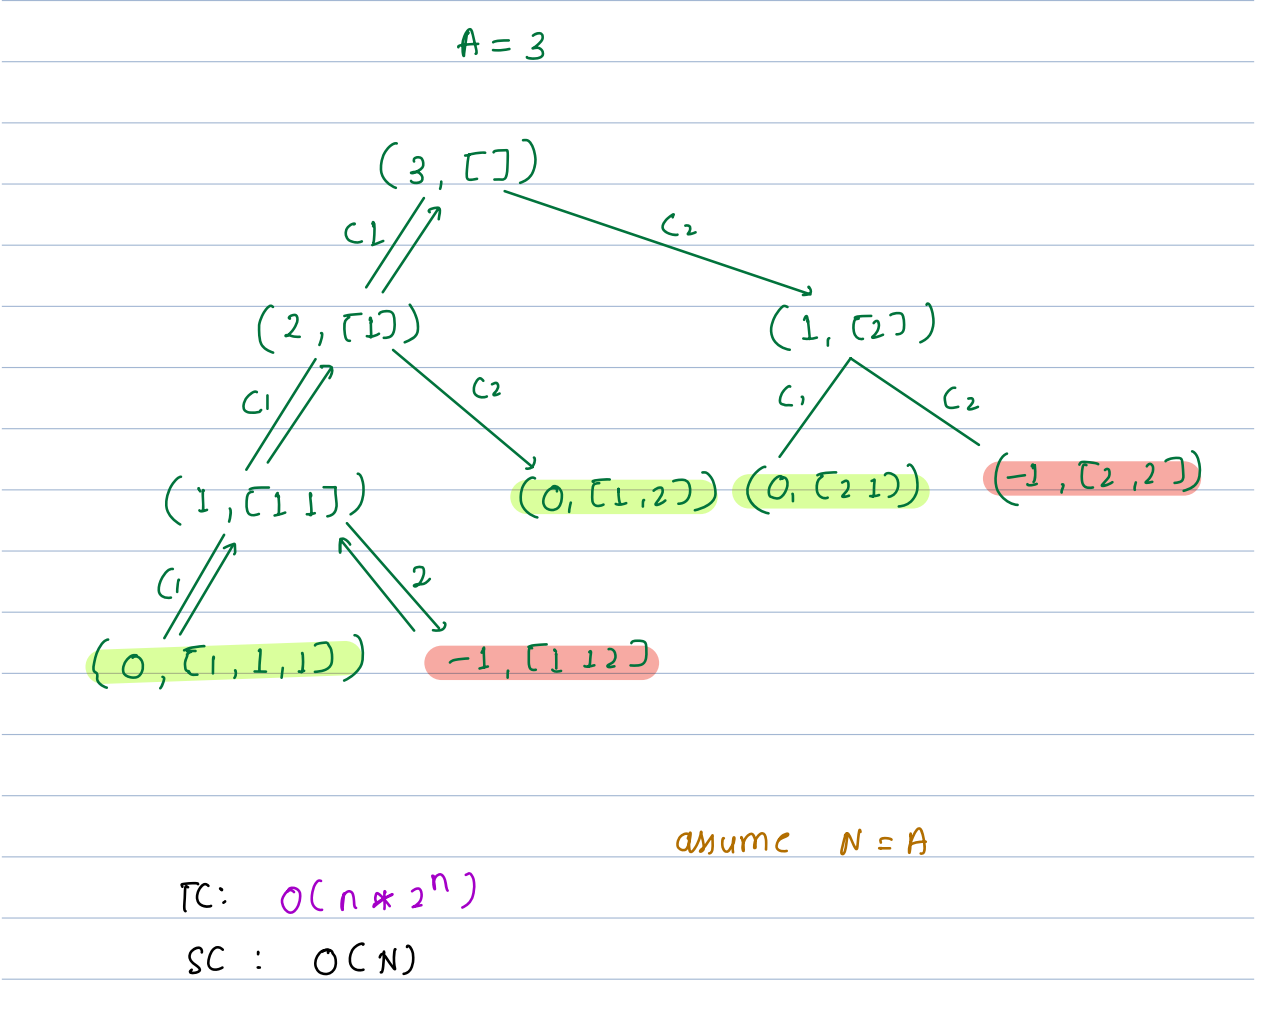 A = 3
(3, [])
C1
C2
(2, [1])
(1, [2])
C1
C2
C1
C2
(1, [1 1])
(0, [1,2])
(0, [2 1])
(-1, [2,2])
C1
2
(0, [1,1,1])
-1, [1 1 2]
assume N = A
TC: O(n * 2^n)
SC : O(N)